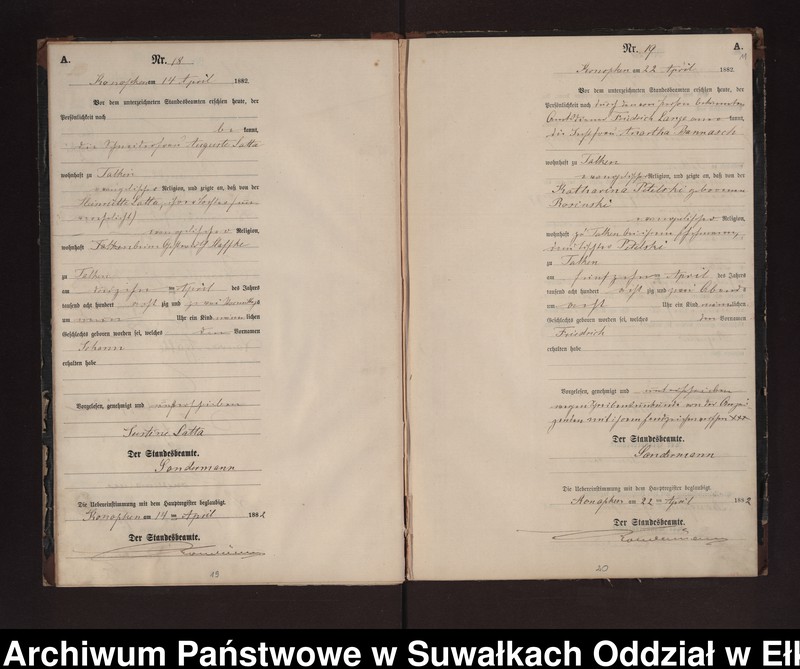 A.
Nr. 18
Konopken am 14 April 1882.
Vor dem unterzeichneten Standesbeamten erschien heute, der
Persönlichkeit nach
be kannt,
die Auguste Latta
wohnhaft zu Talken
evangelischer Religion, und zeigte an, daß von der
Henriette Latta,
evangelischer Religion,
wohnhaft Talken
zu Talken
am April des Jahres
tausend acht hundert acht zig und zwei
um neun Uhr ein Kind männlichen
Geschlechts geboren worden sei, welches den Vornamen
Johann
erhalten habe
Vorgelesen, genehmigt und unterschrieben
Latta
Der Standesbeamte.
Sondermann
Die Uebereinstimmung mit dem Hauptregister beglaubigt.
Konopken am 14 ten April 1882
Der Standesbeamte.
Sondermann
19
Nr. 19
A.
Konopken am 22 April 1882.
Vor dem unterzeichneten Standesbeamten erschien heute, der
Persönlichkeit nach durch den von Person bekannten
Amtsdiener Friedrich Lange aner kannt,
die Martha Bannasch
wohnhaft zu Talken
evangelischer Religion, und zeigte an, daß von der
Katharina Pitelski geborenen
Rosinski
evangelischer Religion,
wohnhaft zu Talken bei ihrem Ehemann,
Pitelski
zu Talken
am fünfzehn ten April des Jahres
tausend acht hundert acht zig und zwei Abends
um acht Uhr ein Kind männlichen
Geschlechts geboren worden sei, welches den Vornamen
Friedrich
erhalten habe
Vorgelesen, genehmigt und
wegen Schreibensunkunde von der Anzei
genden mit ihrem Handzeichen versehen XXX
Der Standesbeamte.
Sondermann
Die Uebereinstimmung mit dem Hauptregister beglaubigt.
Konopken am 22 ten April 1882
Der Standesbeamte.
Sondermann
20
Archiwum Państwowe w Suwałkach Oddział w Ełk